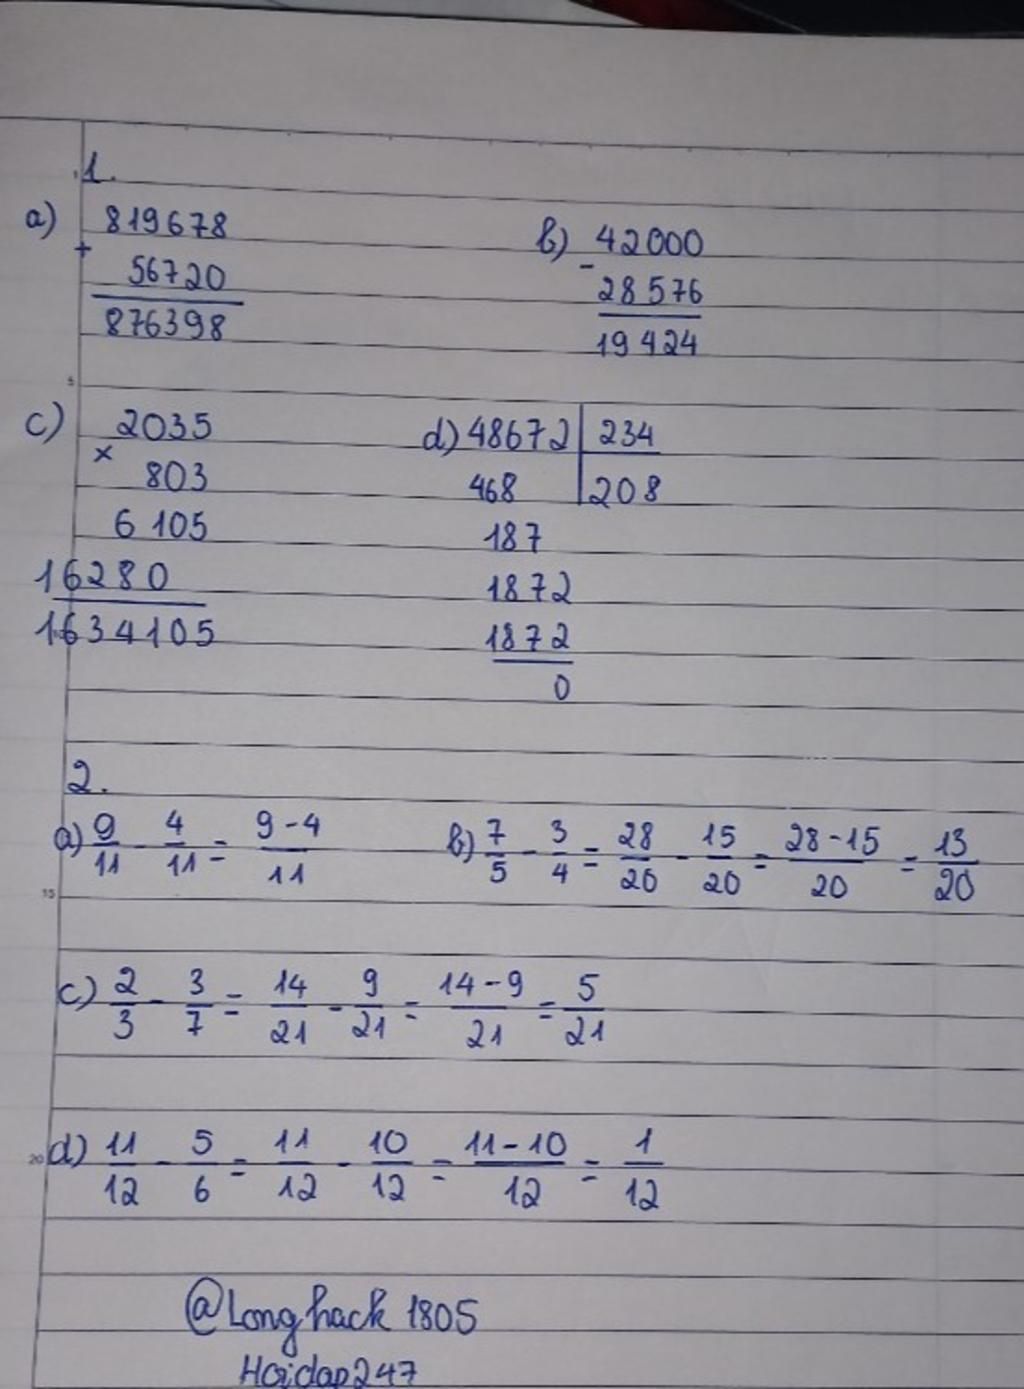 1.
a) 819678
+
56720
876398
b) 42000
-
28576
19424
c) 2035
×
803
6105
16280
1634105
d) 48672 | 234
468 | 208
187
1872
1872
0
2.
a) 9/11 - 4/11 = 9-4/11
b) 7/5 - 3/4 = 28/20 - 15/20 = 28-15/20 = 13/20
c) 2/3 - 3/7 = 14/21 - 9/21 = 14-9/21 = 5/21
d) 11/12 - 5/6 = 11/12 - 10/12 = 11-10/12 = 1/12
@Longhack 1805
Hoidap247
5
15
20